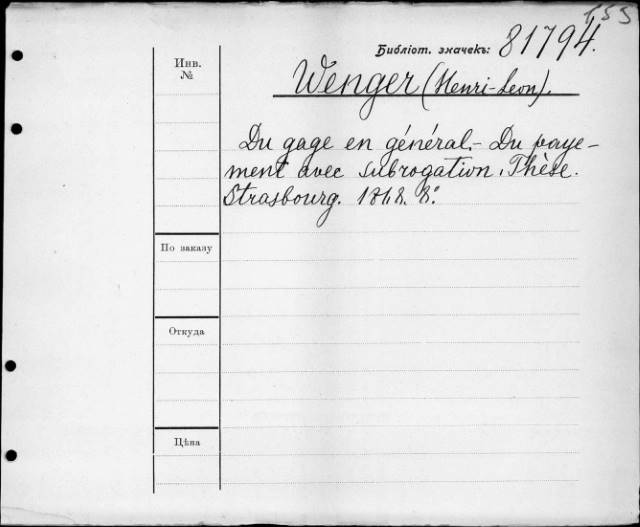 155
Библіот. значекъ: 81794.
Инв.
№
Wenger (Henri-Leon).
Du gage en général. - Du paye-
ment avec subrogation. Thèse.
Strasbourg. 8º.
По заказу
Откуда
Цѣна